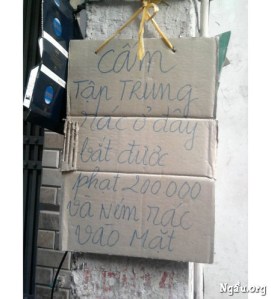 Cấm
TẬP TRUNG
Rác ở đây
bắt được
phạt 200 000
và NÉM RÁC
VÀO MẶT
Ngẫu.org